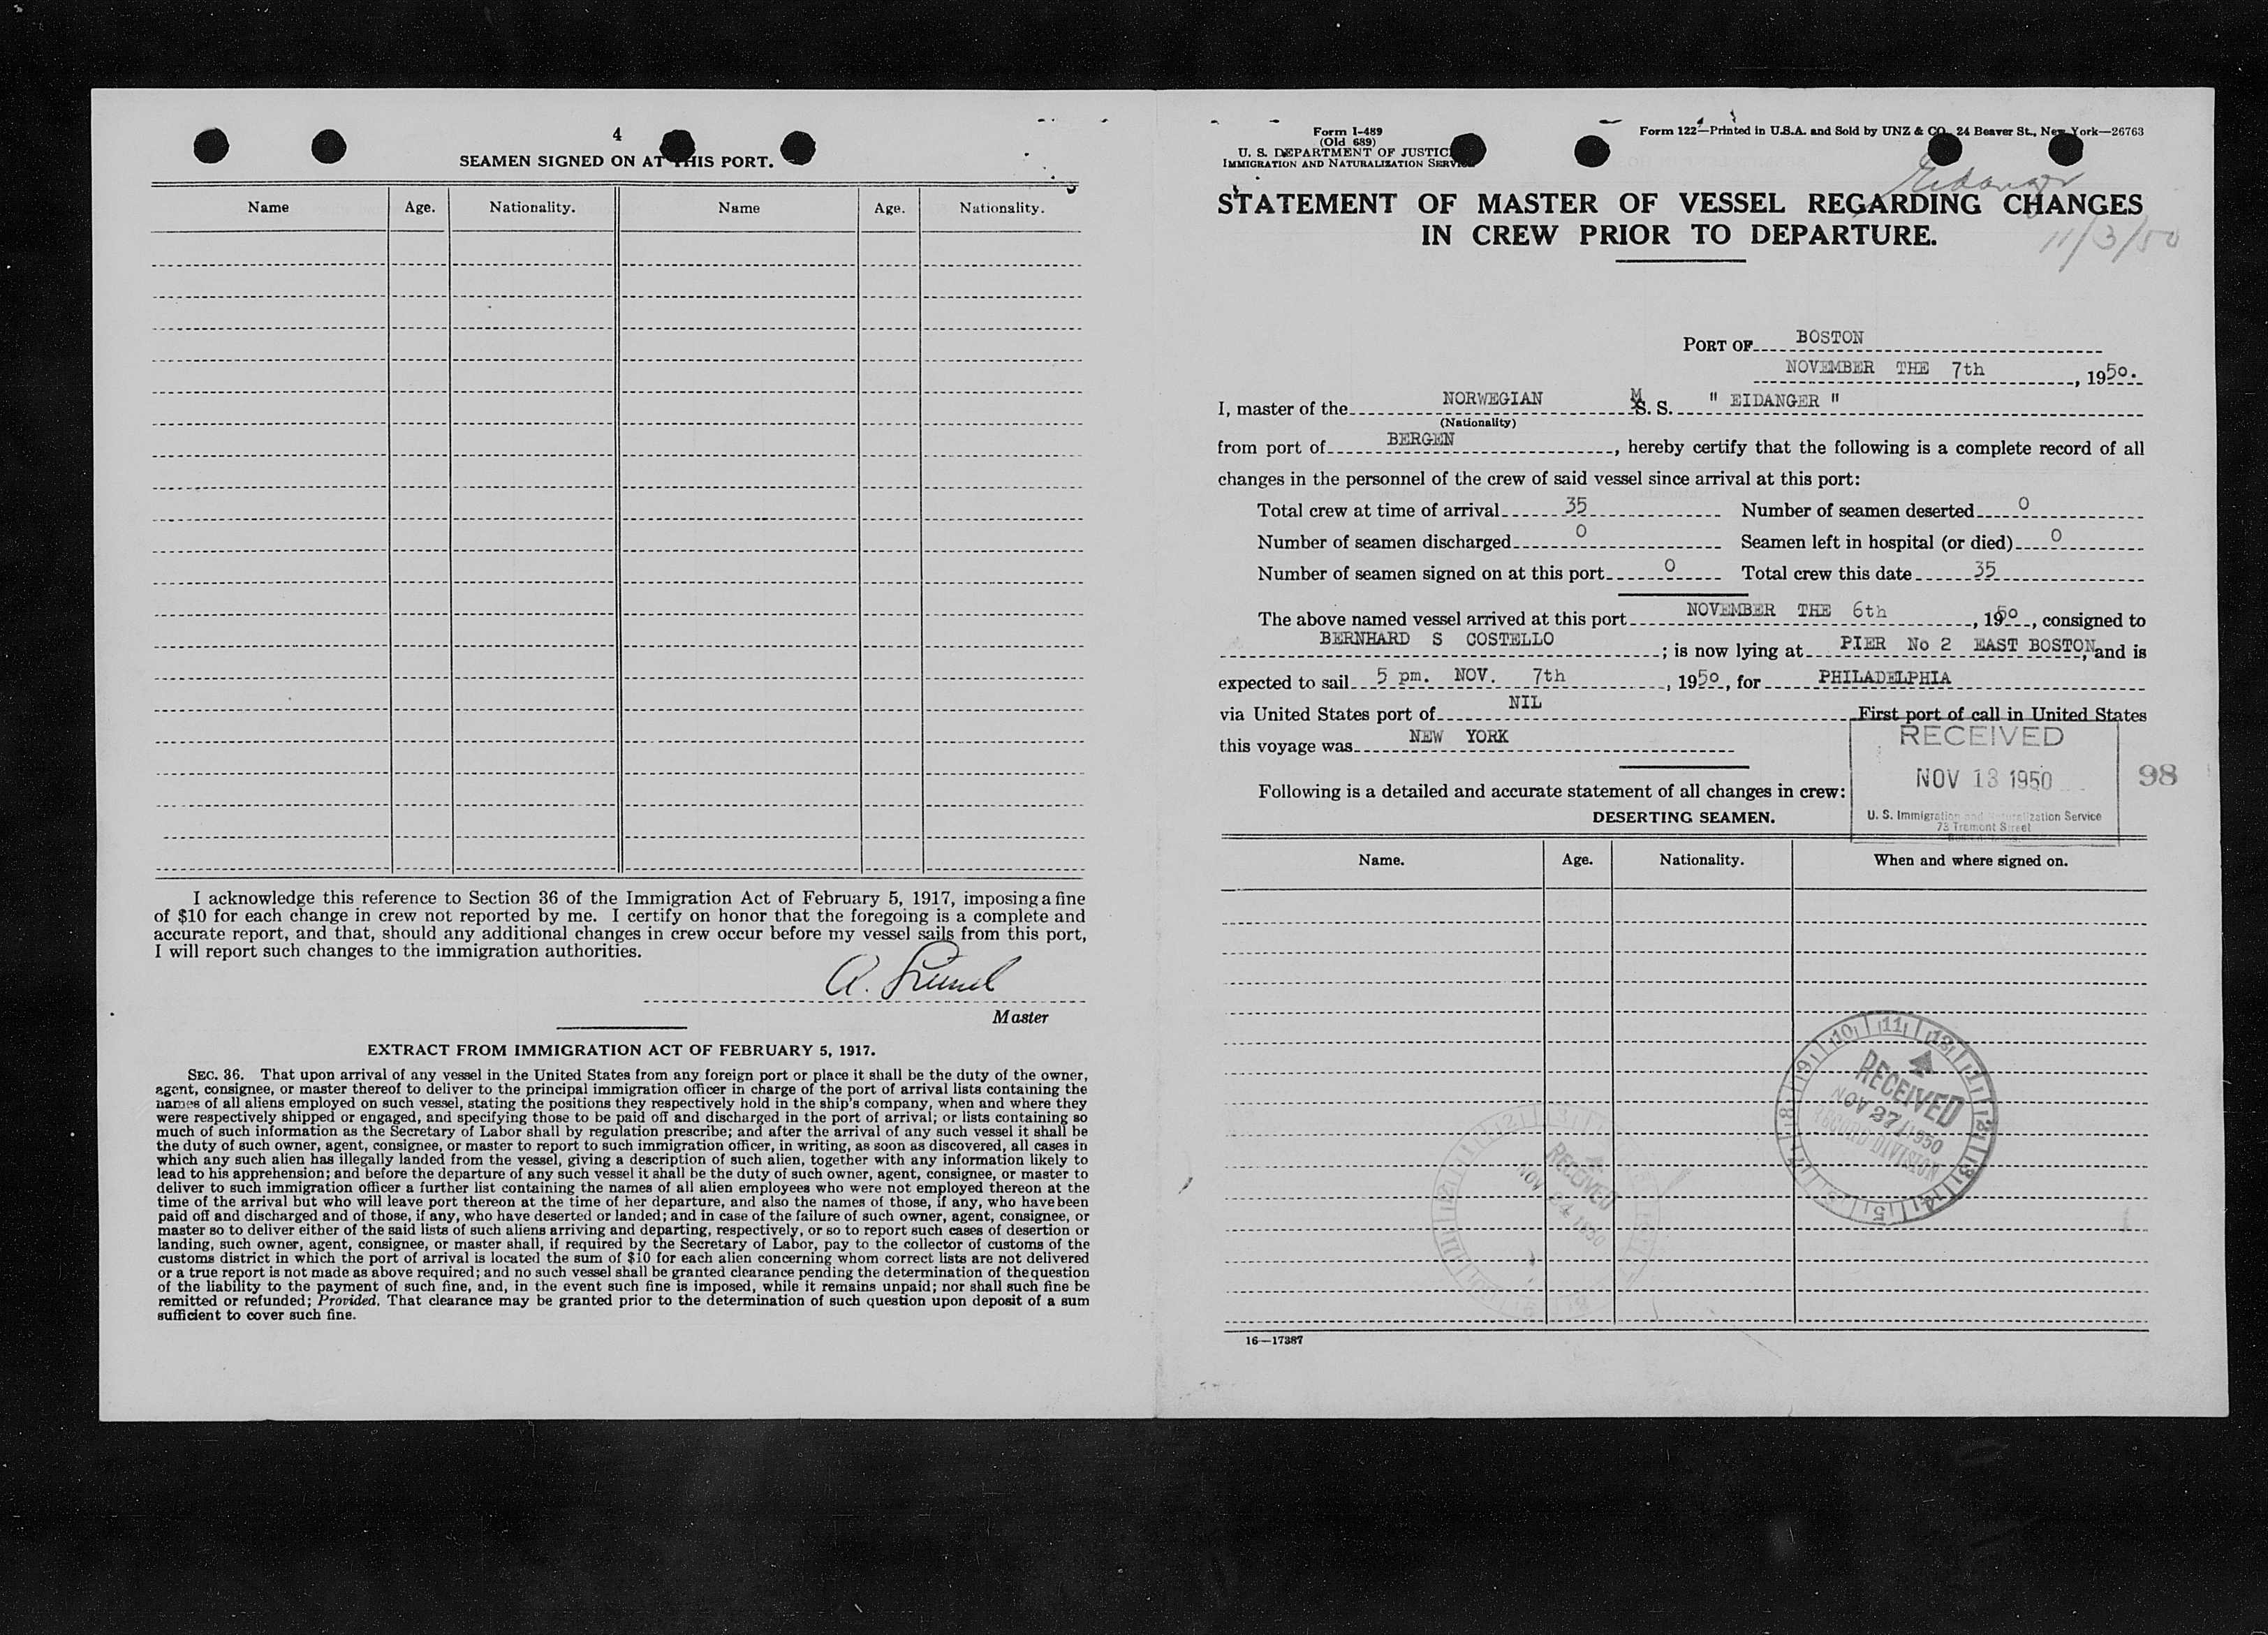 4
SEAMEN SIGNED ON AT THIS PORT.
Name Age. Nationality. Name Age. Nationality.
I acknowledge this reference to Section 36 of the Immigration Act of February 5, 1917, imposing a fine
of $10 for each change in crew not reported by me. I certify on honor that the foregoing is a complete and
accurate report, and that, should any additional changes in crew occur before my vessel sails from this port,
I will report such changes to the immigration authorities.
A.
Master
EXTRACT FROM IMMIGRATION ACT OF FEBRUARY 5, 1917.
SEC. 36. That upon arrival of any vessel in the United States from any foreign port or place it shall be the duty of the owner,
agent, consignee, or master thereof to deliver to the principal immigration officer in charge of the port of arrival lists containing the
names of all aliens employed on such vessel, stating the positions they respectively hold in the ship's company, when and where they
were respectively shipped or engaged, and specifying those to be paid off and discharged in the port of arrival; or lists containing so
much of such information as the Secretary of Labor shall by regulation prescribe; and after the arrival of any such vessel it shall be
the duty of such owner, agent, consignee, or master to report to such immigration officer, in writing, as soon as discovered, all cases in
which any such alien has illegally landed from the vessel, giving a description of such alien, together with any information likely to
lead to his apprehension; and before the departure of any such vessel it shall be the duty of such owner, agent, consignee, or master to
deliver to such immigration officer a further list containing the names of all alien employees who were not employed thereon at the
time of the arrival but who will leave port thereon at the time of her departure, and also the names of those, if any, who have been
paid off and discharged and of those, if any, who have deserted or landed; and in case of the failure of such owner, agent, consignee, or
master so to deliver either of the said lists of such aliens arriving and departing, respectively, or so to report such cases of desertion or
landing, such owner, agent, consignee, or master shall, if required by the Secretary of Labor, pay to the collector of customs of the
customs district in which the port of arrival is located the sum of $10 for each alien concerning whom correct lists are not delivered
or a true report is not made as above required; and no such vessel shall be granted clearance pending the determination of the question
of the liability to the payment of such fine, and, in the event such fine is imposed, while it remains unpaid; nor shall such fine be
remitted or refunded; Provided, That clearance may be granted prior to the determination of such question upon deposit of a sum
sufficient to cover such fine.
Form I-489
(Old 689)
U. S. DEPARTMENT OF JUSTICE
IMMIGRATION AND NATURALIZATION SERVICE
Form 122—Printed in U.S.A. and Sold by UNZ & CO., 24 Beaver St., New York—26763
Eidanger
STATEMENT OF MASTER OF VESSEL REGARDING CHANGES
IN CREW PRIOR TO DEPARTURE.
11/3/50
PORT OF BOSTON
NOVEMBER THE 7th, 1950.
I, master of the NORWEGIAN M S. S. " EIDANGER "
(Nationality)
from port of BERGEN, hereby certify that the following is a complete record of all
changes in the personnel of the crew of said vessel since arrival at this port:
Total crew at time of arrival 35 Number of seamen deserted 0
Number of seamen discharged 0 Seamen left in hospital (or died) 0
Number of seamen signed on at this port 0 Total crew this date 35
The above named vessel arrived at this port NOVEMBER THE 6th, 1950, consigned to
BERNHARD S COSTELLO; is now lying at PIER No 2 EAST BOSTON, and is
expected to sail 5 pm. NOV. 7th, 1950, for PHILADELPHIA
via United States port of NIL First port of call in United States
this voyage was NEW YORK
RECEIVED
NOV 13 1950
U. S. Immigration and Naturalization Service
73 Tremont Street
98
Following is a detailed and accurate statement of all changes in crew:
DESERTING SEAMEN.
Name. Age. Nationality. When and where signed on.
RECEIVED
NOV 27 1950
RECORD DIVISION
RECEIVED
NOV 24 1950
16—17387